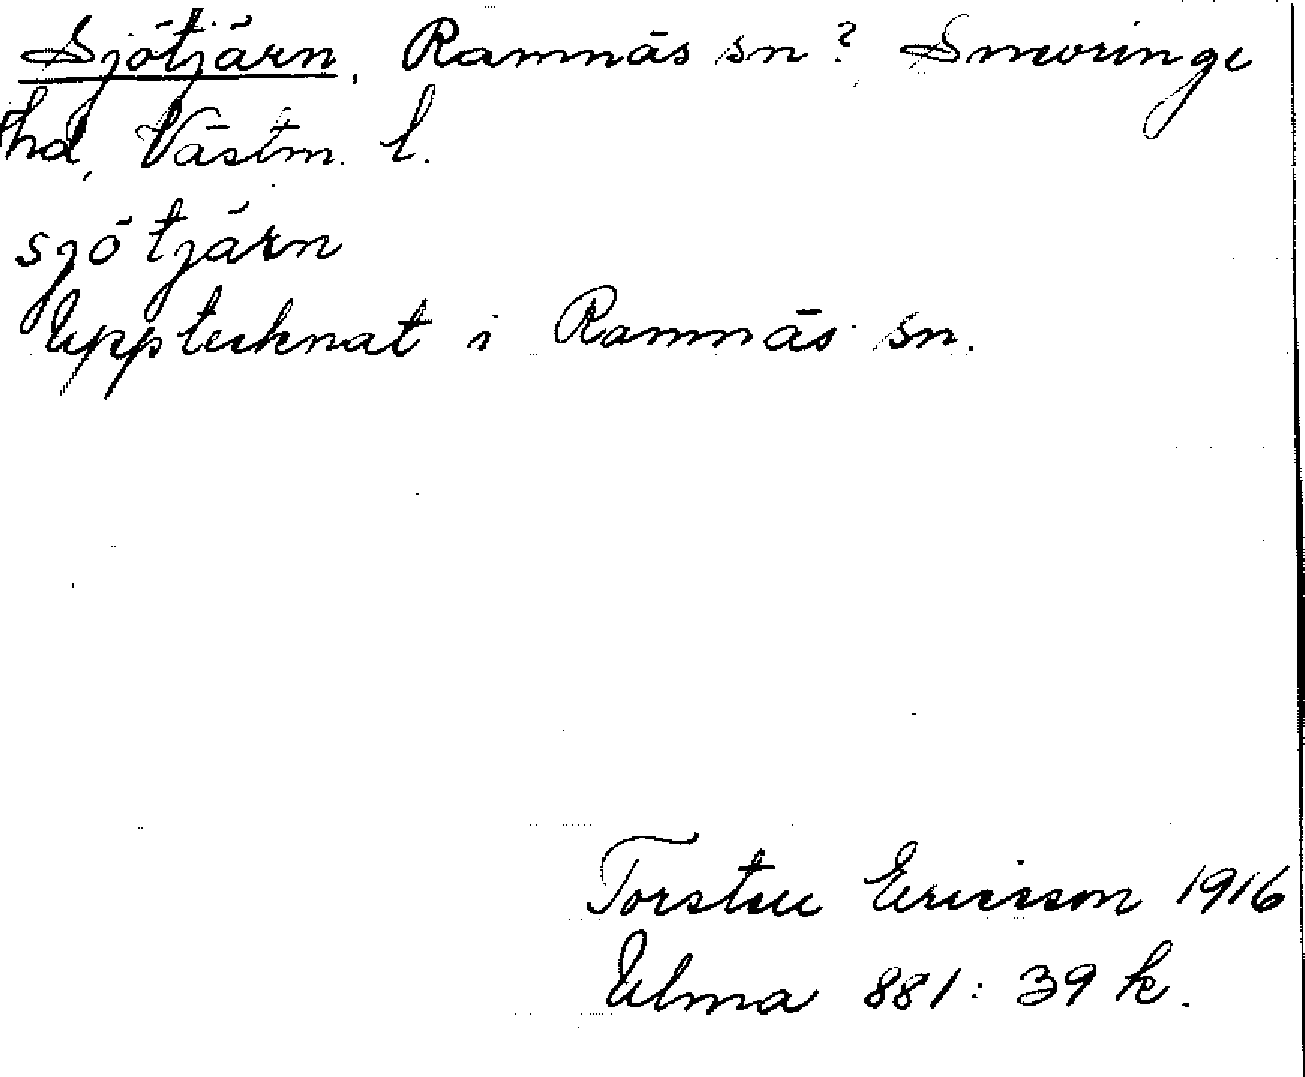 Sjötjärn, Ramnäs sn? Snevringe
hd, Västm. l.
sjötjärn
Upptecknat i Ramnäs sn.
Torsten Ericsson 1916
Ulma 881:39 k.